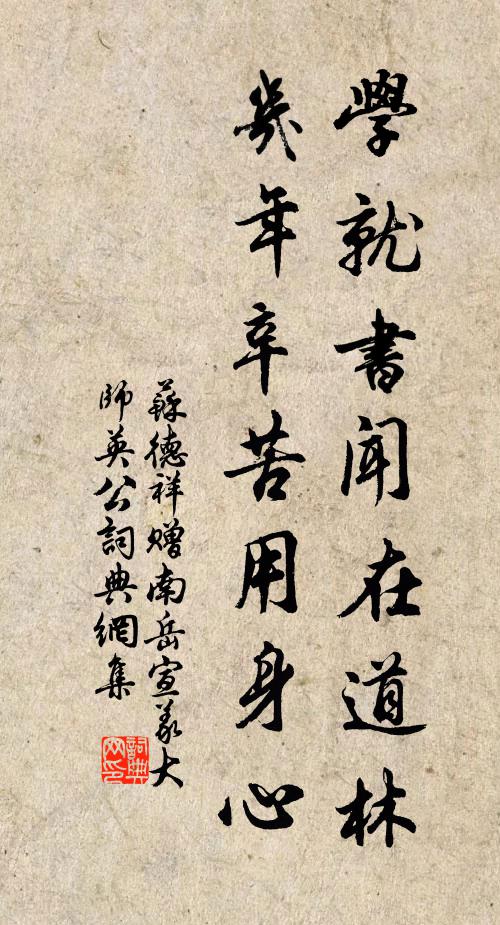 學就書聞在道林
幾年辛苦用身心
蘇德祥贈南岳宣義大
師英公詞典網集
詞典
网印